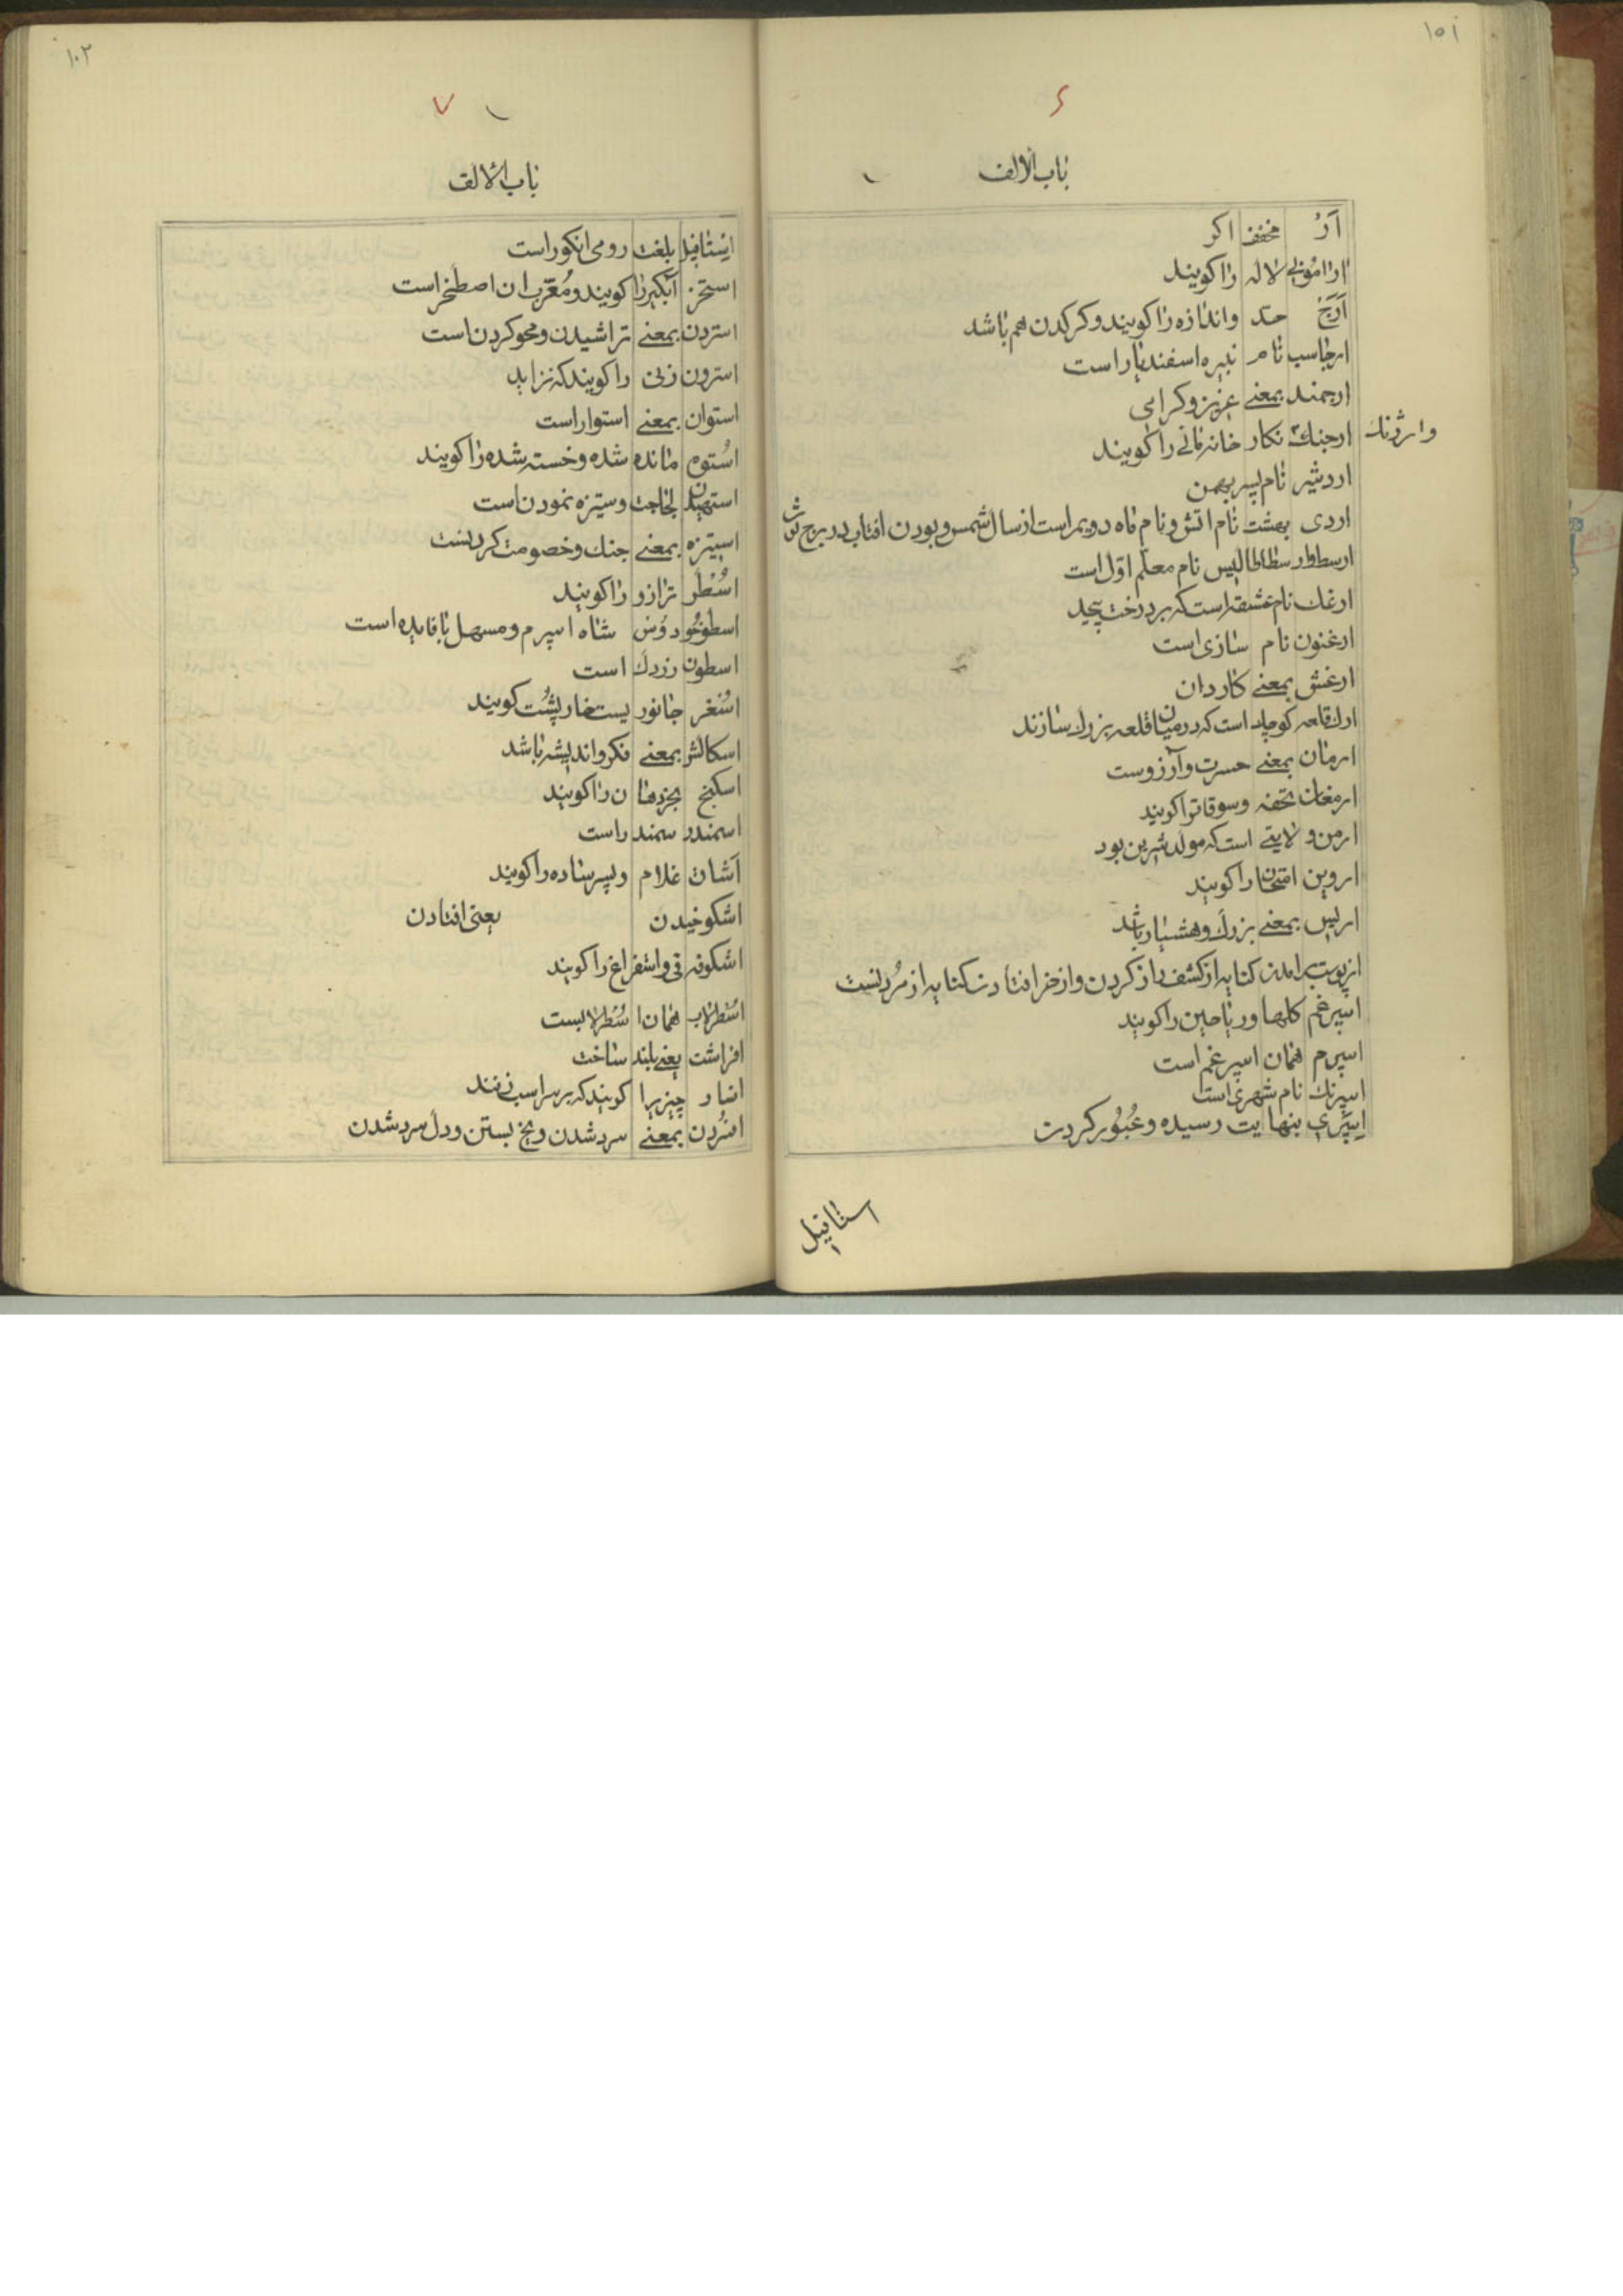 ۱۰۱
۶
باب الالف
اَرْ مخفف اکر
ارامونی لاله را کویند
اَرَجْ حد و اندازه را کویند و کرکدن هم باشد
ارجاسب نام نبیره اسفندیار است
ارجمند بمعنی عزیز و کرامی
ارجنک نکار خانه مانی را کویند
وارژنک
اردشیر نام پسر بهمن
اردی بهشت نام اتش و نام ماه دویم است از سال شمس و بودن افتاب در برج ثور
ارسطا و ارسطاطالیس نام معلم اوّل است
ارغک نام عشقه است که بر درخت پیچد
ارغنون نام سازی است
ارغش بمعنی کاردان
ارک قلعه کوچک است که در میان قلعه بزرک سازند
ارمان بمعنی حسرت و آرزوست
ارمغان تحفه و سوقاترا کویند
ارمن ولایتی است که مولد شیرین بود
اروین امتحان را کویند
اریس بمعنی بزرک و هشیار باشد
از پوست برامدن کنایه از کشف راز کردن و از خر افتادن کنایه از مُردنست
اسپرغم کلها و ریاحین را کویند
اسپرم همان اسپرغم است
اسپرنک نام شهری است
اِسپَری بنهایت رسیده و عُبُور کردن
استافیل
۱۰۲
۷
باب الالف
اِستافیل بلغت رومی انکور است
استخر آبکیر را کویند و مُعّرب ان اصطخر است
استردن بمعنی تراشیدن و محو کردن است
استرون زنی را کویند که نزاید
استوان بمعنی استوار است
اُستوه مانده شده و خسته شده را کویند
استهیدن لجاجت و ستیزه نمودن است
استیزه بمعنی جنک و خصومت کردنست
اُسْطُر ترازو را کویند
اسطوخودوس شاه اسپرم و مسهل با فایده است
اسطون زردک است
اُسْغر جانوریست خارپشت کویند
اسکالش بمعنی فکر و اندیشه باشد
اسکنج بخر دهان را کویند
اسمندر سمندر است
اَشان غلام و پسر ساده را کویند
اشکوخیدن یعنی افتادن
اشکوفه قی و استفراغ را کویند
اُسْطرلاب همان اسُطرلابست
افراشت یعنی بلند ساخت
افسار چیزیرا کویند که بر سر اسب زنند
افسُردن بمعنی سرد شدن و یخ بستن و دل سرد شدن